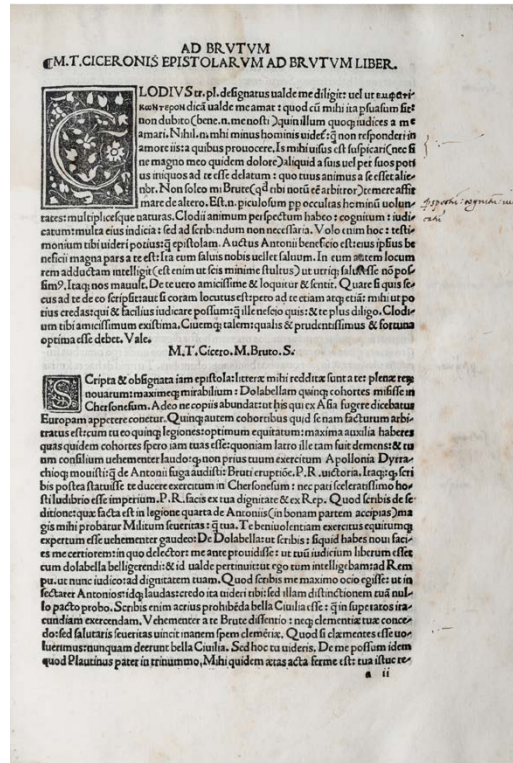 AD BRVTVM
¶M.T.CICERONIS EPISTOLARVM AD BRVTVM LIBER.
CLODIVS tr. pl. designatus ualde me diligit: uel ut εμφατι
κωτερον dicā ualde me amat: quod cū mihi ita ꝑsuasum sit:
non dubito (bene.n.me nosti) quin illum quoq; iudices a me
amari. Nihil.n.mihi minus hominis uidet̃: q̃ non responderi in
amore iis: a quibus prouocere. Is mihi uisus est suspicari (nec si
ne magno meo quidem dolore) aliquid a suis uel per suos poti
us iniquos ad te esse delatum: quo tuus animus a se esset alie
nior. Non soleo mi Brute (qd tibi notū eē arbitror) temere affir
mare de altero. Est.n.piculosum ꝓp occultas hominū uolun
tates: multiplicesque naturas. Clodii animum perspectum habeo: cognitum: iudi
catum: multa eius indicia: sed ad scribendum non necessaria. Volo enim hoc: testi
monium tibi uideri potius: q̃ epistolam. Auctus Antonii beneficio est: eius ipsius be
neficii magna pars a te est: Ita eum saluis nobis uellet saluum. In eum autem locum
rem adductam intelligit (est enim ut scis minime stultus) ut utriq; salui esse nō pos
sim9. Itaq; nos mauult. De te uero amicissime & loquitur & sentit. Quare si quis se
cus ad te de eo scripsit: aut si coram locutus est: peto a te etiam atq; etiā: mihi ut po
tius credas: qui & facilius iudicare possum: q̃ ille nescio quis: & te plus diligo. Clodi
um tibi amicissimum existima. Ciuemq; talem: qualis & prudentissimus & fortuna
optima esse debet. Vale.
M.T.Cicero.M.Bruto.S.
SCripta & obsignata iam epistola: litteræ mihi redditæ sunt a te: plenæ reꝝ
nouarum: maximeq; mirabilium: Dolabellam quinq; cohortes misisse in
Chersonesum. Adeo ne copiis abundat: ut his qui ex Asia fugere dicebatur
Europam appetere conetur. Quinq; autem cohortibus quid se nam facturum arbi
tratus est: cum tu eo quinq; legiones: optimum equitatum: maxima auxilia haberes
quas quidem cohortes spero iam tuas esse: quoniam latro ille tam fuit demens: & tu
um consilium uehementer laudo: q̃ non prius tuum exercitum Apollonia Dyrra
chioq; mouisti: q̃ de Antonii fuga audisti: Bruti eruptiōe. P.R. uictoria. Itaq; q̃ scri
bis postea statuisse te ducere exercitum in Chersonesum: nec pati sceleratissimo ho
sti ludibrio esse imperium. P.R. facis ex tua dignitate & ex Rep. Quod scribis de se
ditione: quæ facta est in legione quarta de Antoniis (in bonam partem accipias) ma
gis mihi probatur Militum seueritas: q̃ tua. Te beniuolentiam exercitus equitumq;
expertum esse uehementer gaudeo: De Dolabella: ut scribis: siquid habes noui faci
es me certiorem: in quo delector: me ante prouidisse: ut tuū iudicium liberum esset
cum dolabella belligerendi: & id ualde pertinuit: ut ego tum intelligebam: ad Rem
pu. ut nunc iudico: ad dignitatem tuam. Quod scribis me maximo ocio egisse: ut in
sectarer Antonios: idq; laudas: credo ita uideri tibi: sed illam distinctionem tuā nul
lo pacto probo. Scribis enim acrius prohibēda bella Ciuilia esse: q̃ in superatos ira
cundiam exercendam. Vehementer a te Brute dissentio: neq; clementiæ tuæ conce
do: sed salutaris seueritas uincit inanem spem clemētiæ. Quod si clæmentes esse uo
luerimus: nunquam deerunt bella Ciuilia. Sed hoc tu uideris. De me possum idem
quod Plautinus pater in trinummo, Mihi quidem ætas acta ferme est: tua istuc re
a ii